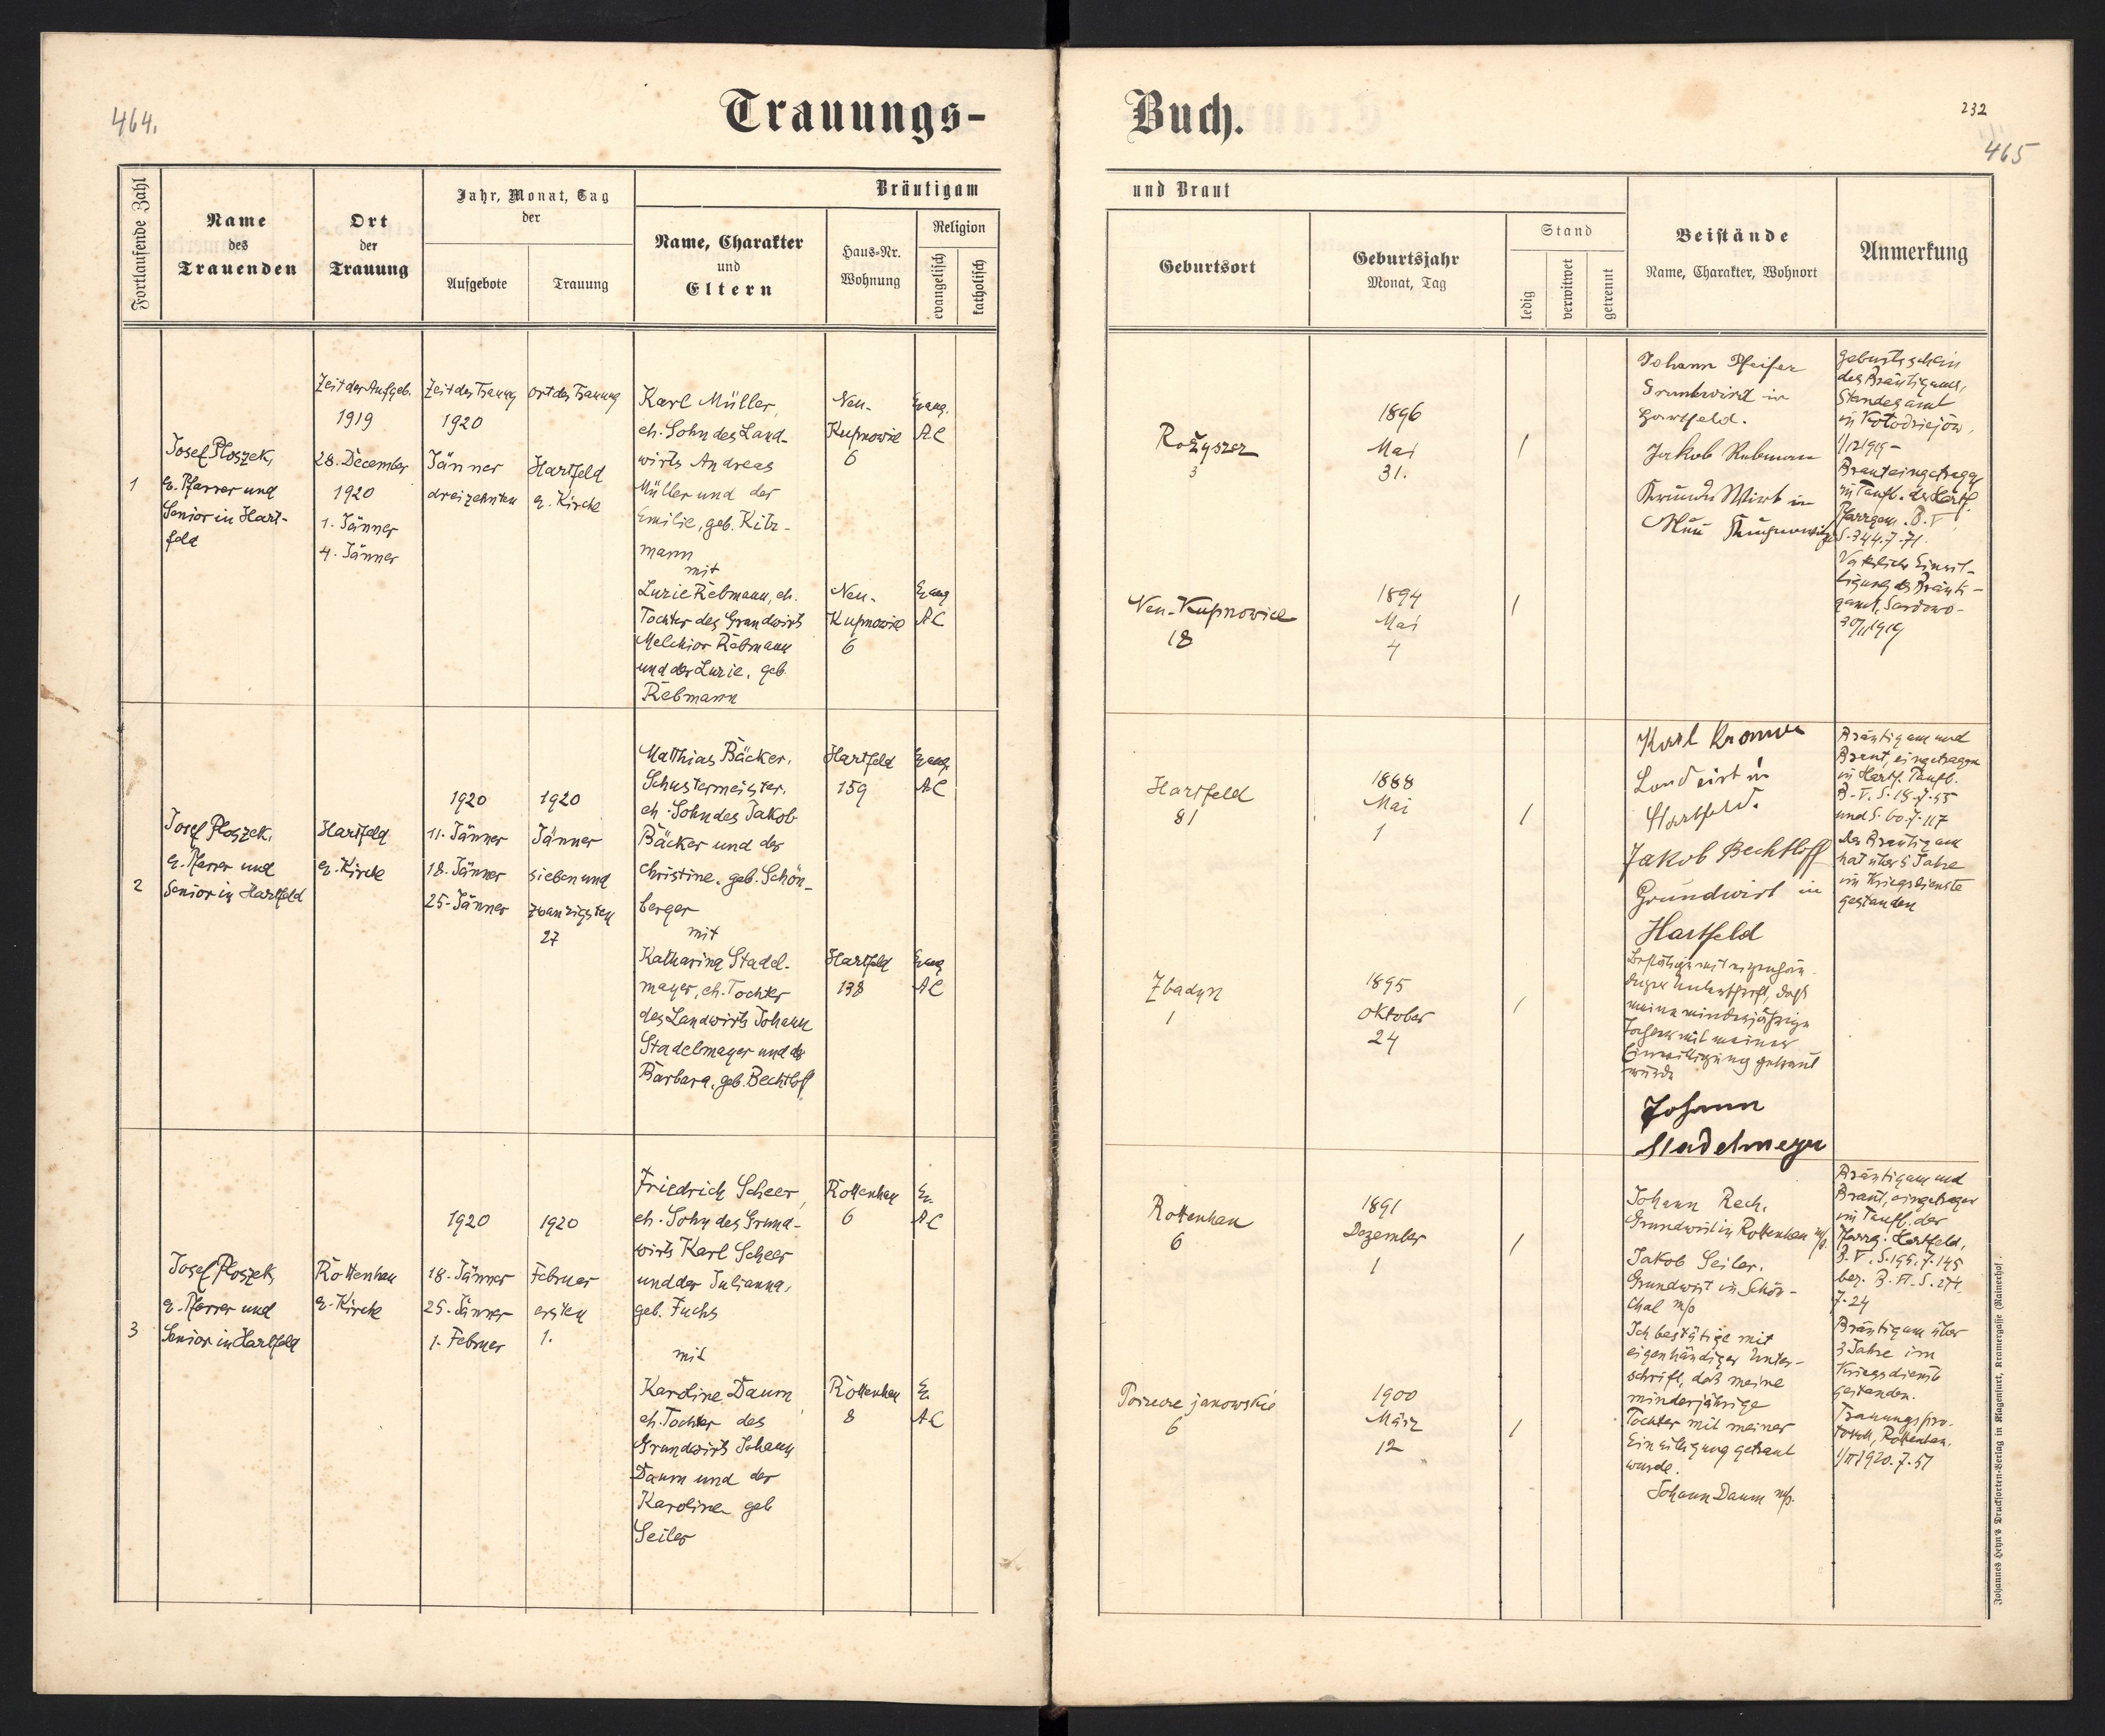 464.
Trauungs-
Fortlaufende Zahl
Name
des
Trauenden
Ort
der
Trauung
Jahr, Monat, Tag
der
Aufgebote
Trauung
Bräutigam
Name, Charakter
und
Eltern
Haus-Nr.
Wohnung
Religion
evangelisch
katholisch
1
Josef Ploszek,
e. Pfarrer und
Senior in Hart-
feld
Zeit der Aufgeb.
1919
28. December
1920
1. Jänner
4. Jänner
Zeit des Trauung
1920
Jänner
dreizehnten
Ort des Trauung
Hartfeld
e. Kirche
Karl Müller,
eh. Sohn des Land-
wirts Andreas
Müller und der
Emilie, geb. Kitz-
mann
mit
Luzie Rebmann, eh.
Tochter des Grundwirts
Melchior Rebmann
und der Luzie, geb.
Rebmann
Neu-
Kupnowice
6
Evang.
AC
Neu-
Kupnowice
6
Evang
AC
2
Josef Ploszek,
e. Pfarrer und
Senior in Hartfeld
Hartfeld
e. Kirche
1920
11. Jänner
18. Jänner
25. Jänner
1920
Jänner
sieben und
zwanzigsten
27
Matthias Bäcker,
Schustermeister,
eh. Sohn des Jakob
Bäcker und der
Christine, geb. Schön-
berger
mit
Katharina Stadel-
mayer, eh. Tochter
des Landwirts Johann
Stadelmayer und der
Barbara, geb. Bechtloff
Hartfeld
159
Evang.
AC
Hartfeld
138
Evang
AC
3
Josef Ploszek
e. Pfarrer und
Senior in Hartfeld
Rottenhan
e. Kirche
1920
18. Jänner
25. Jänner
1. Februar
1920
Februar
ersten
1.
Friedrich Scheer,
eh. Sohn des Grund-
wirts Karl Scheer
und der Julianna,
geb. Fuchs
mit
Karoline Daum,
eh. Tochter des
Grundwirts Johann
Daum und der
Karoline geb
Seiler
Rottenhan
6
Ev.
AC
Rottenhan
8
Ev.
AC
Buch.
232
465
und Braut
Geburtsort
Geburtsjahr
Monat, Tag
Stand
ledig
verwitwet
getrennt
Beistände
Name, Charakter, Wohnort
Anmerkung
Rożyszcz
3
1896
Mai
31.
1
Neu-Kupnowice
18
1894
Mai
4
1
Johann Pfeifer
Grundwirt in
Hartfeld.
Jakob Rebmann
Grund Wirt in
Neu Kupnowice
Geburtsschein
des Bräutigams,
Standesamt
in Kołodziejow,
1/12 1919 -
Braut eingetragen
in Taufb. der Hartf.
Pfarrgem. B. V
S. 344. Z. 71.
Väterliche Einwil-
ligung des Bräuti-
gams,
30/11 1919
Hartfeld
81
1888
Mai
1
1
Zbadyn
1
1895
Oktober
24
1
Karl Kromer
Landwirt in
Hartfeld.
Jakob Bechtloff
Grundwirt in
Hartfeld
Bestätige mit eigenhän-
diger Unterschrift, daß
meine minderjährige
Tochter mit meiner
Einwilligung getraut
wurde
Johann
Stadelmeyer
Bräutigam und
Braut, eingetragen
in Hartf. Taufb.
B. V. S. 15. Z. 55
und S. 60. Z. 117
Der Bräutigam
hat über 5 Jahre
im Kriegsdienste
gestanden
Rottenhan
6
1891
Dezember
1
1
Porzecze janowskie
6
1900
März
12
1
Johann Rech,
Grundwirt in Rottenhan m/p.
Jakob Seiler,
Grundwirt in Schön-
thal m/p
Ich bestätige mit
eigenhändiger Unter-
schrift, daß meine
minderjährige
Tochter mit meiner
Einwilligung getraut
wurde.
Johann Daum m/p.
Bräutigam und
Braut, eingetragen
im Taufb. der
Pfarrg. Hartfeld,
B. V. S. 195. Z. 145
bez. B. VI. S. 274.
Z. 24
Bräutigam über
3 Jahre im
Kriegsdienst
gestanden.
Trauungspro-
tokoll, Rottenhan,
1/II 1920. Z. 51
Johannes Heyn's Drucksorten-Verlag in Klagenfurt, Kramergasse (Rainerhof)